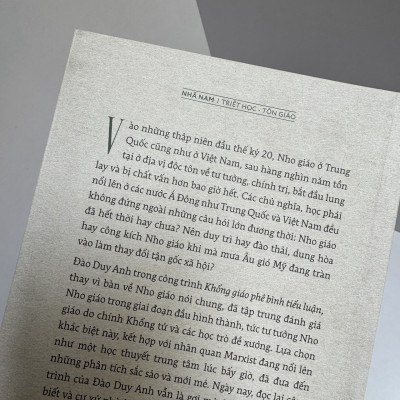 NHÃ NAM | TRIẾT HỌC - TÔN GIÁO
Vào những thập niên đầu thế kỷ 20, Nho giáo ở Trung
Quốc cũng như ở Việt Nam, sau hàng nghìn năm tồn
tại ở địa vị độc tôn về tư tưởng, chính trị, bắt đầu lung
lay và bị chất vấn hơn bao giờ hết. Các chủ nghĩa, học phái
nổi lên ở các nước Á Đông như Trung Quốc và Việt Nam đều
không đứng ngoài những câu hỏi lớn đương thời: Nho giáo
đã hết thời hay chưa? Nên duy trì hay đào thải, dung hòa
hay công kích Nho giáo khi mà mưa Âu gió Mỹ đang tràn
vào làm thay đổi tận gốc xã hội?
Đào Duy Anh trong công trình Khổng giáo phê bình tiểu luận,
thay vì bàn về Nho giáo nói chung, đã tập trung đánh giá
Nho giáo trong giai đoạn đầu hình thành, tức tư tưởng Nho
giáo do chính Khổng tử và các học trò đề xướng. Lựa chọn
khác biệt này, kết hợp với nhãn quan Marxist đang nổi lên
như một học thuyết trung tâm lúc bấy giờ, đã đưa đến
những phân tích sắc sảo và mới mẻ. Ngày nay, đọc lại công
trình của Đào Duy Anh vẫn là gợi mở
biết và cư xử